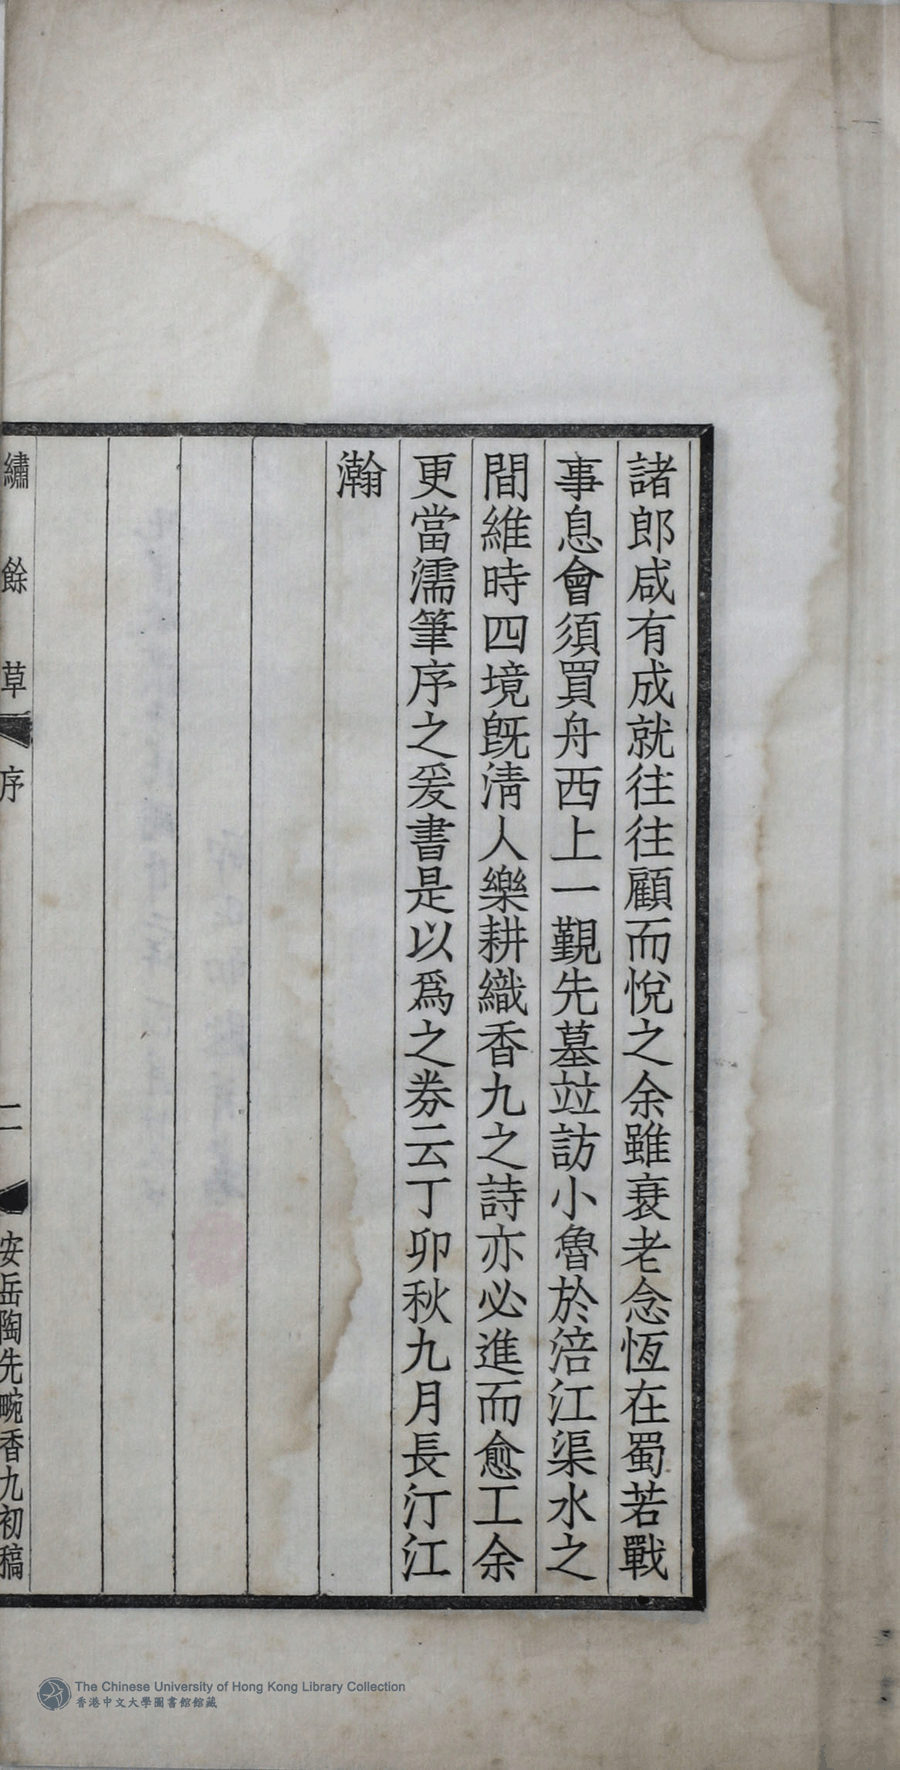 諸郎咸有成就往往顧而悅之余雖衰老念恆在蜀若戰
事息會須買舟西上一觀先墓竝訪小魯於涪江渠水之
間維時四境旣淸人樂耕織香九之詩亦必進而愈工余
更當濡筆序之爰書是以爲之券云丁卯秋九月長汀江
瀚
繡餘草 序 二 安岳陶先畹香九初稿
The Chinese University of Hong Kong Library Collection
香港中文大學圖書館館藏